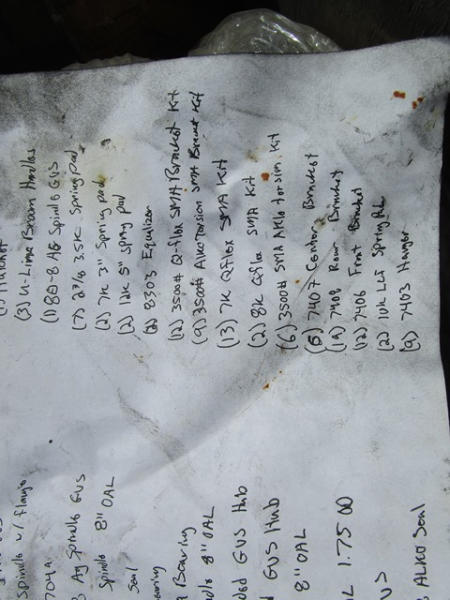 (1) 80-8 AG Spindle GVS
(7) 2 3/8 3.5K Spring pad
(2) 7K 3" Spring pad
(2) 12K 5" Spring pad
(2) 8303 Equalizer
(12) 3500# Q-flex SMA Bracket Kit
(9) 3500# Alko Torsion SMA Bracket Kit
(13) 7K Qflex SMA Kit
(2) 8K Qflex SMA Kit
(6) 3500# SMA Alko torsion Kit
(5) 7407 Center Bracket
7408 Rear Bracket
(12) 7406 Front Bracket
(2) 10K LCI Spring
(9) 7403 Hanger
Spindle w/ flange
704A
AG Spindle GVS
Spindle 8" OAL
Seal
Bearing
8" OAL
GVS Hub
GVS Hub
8" OAL
1.75 00
GVS
ALKO Seal